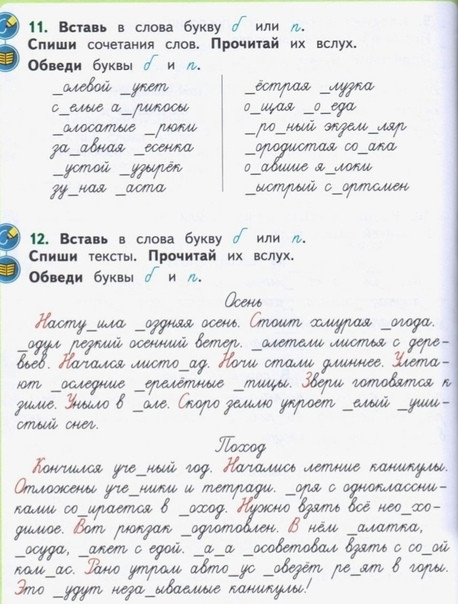 11. Вставь в слова букву б или п.
Спиши сочетания слов. Прочитай их вслух.
Обведи буквы б и п.
_олевой _укет
с_елые а_рикосы
_олосатые _рюки
за_авная _есенка
_устой _узырёк
зу_ная _аста
_ёстрая _лузка
о_щая _о_еда
_ро_ный экзем_ляр
_ородистая со_ака
о_авшие я_локи
_ыстрый с_ортсмен
12. Вставь в слова букву б или п.
Спиши тексты. Прочитай их вслух.
Обведи буквы б и п.
Осень
Насту_ила _оздняя осень. Стоит хмурая _огода.
_одул резкий осенний ветер. _олетели листья с дере-
вьев. Начался листо_ад. Ночи стали длиннее. Улета-
ют _оследние _ерелётные _тицы. Звери готовятся к
зиме. Уныло в _оле. Скоро землю укроет _елый _уши-
стый снег.
Поход
Кончился уче_ный год. Начались летние каникулы.
Отложены уче_ники и тетради. _оря с одноклассни-
ками со_ирается в _оход. Нужно взять всё нео_хо-
димое. Вот рюкзак _одготовлен. В нём _алатка,
_осуда, _акет с едой. _а_а _осоветовал взять с со_ой
ком_ас. Рано утром авто_ус _овезёт ре_ят в горы.
Это _удут неза_ываемые каникулы!